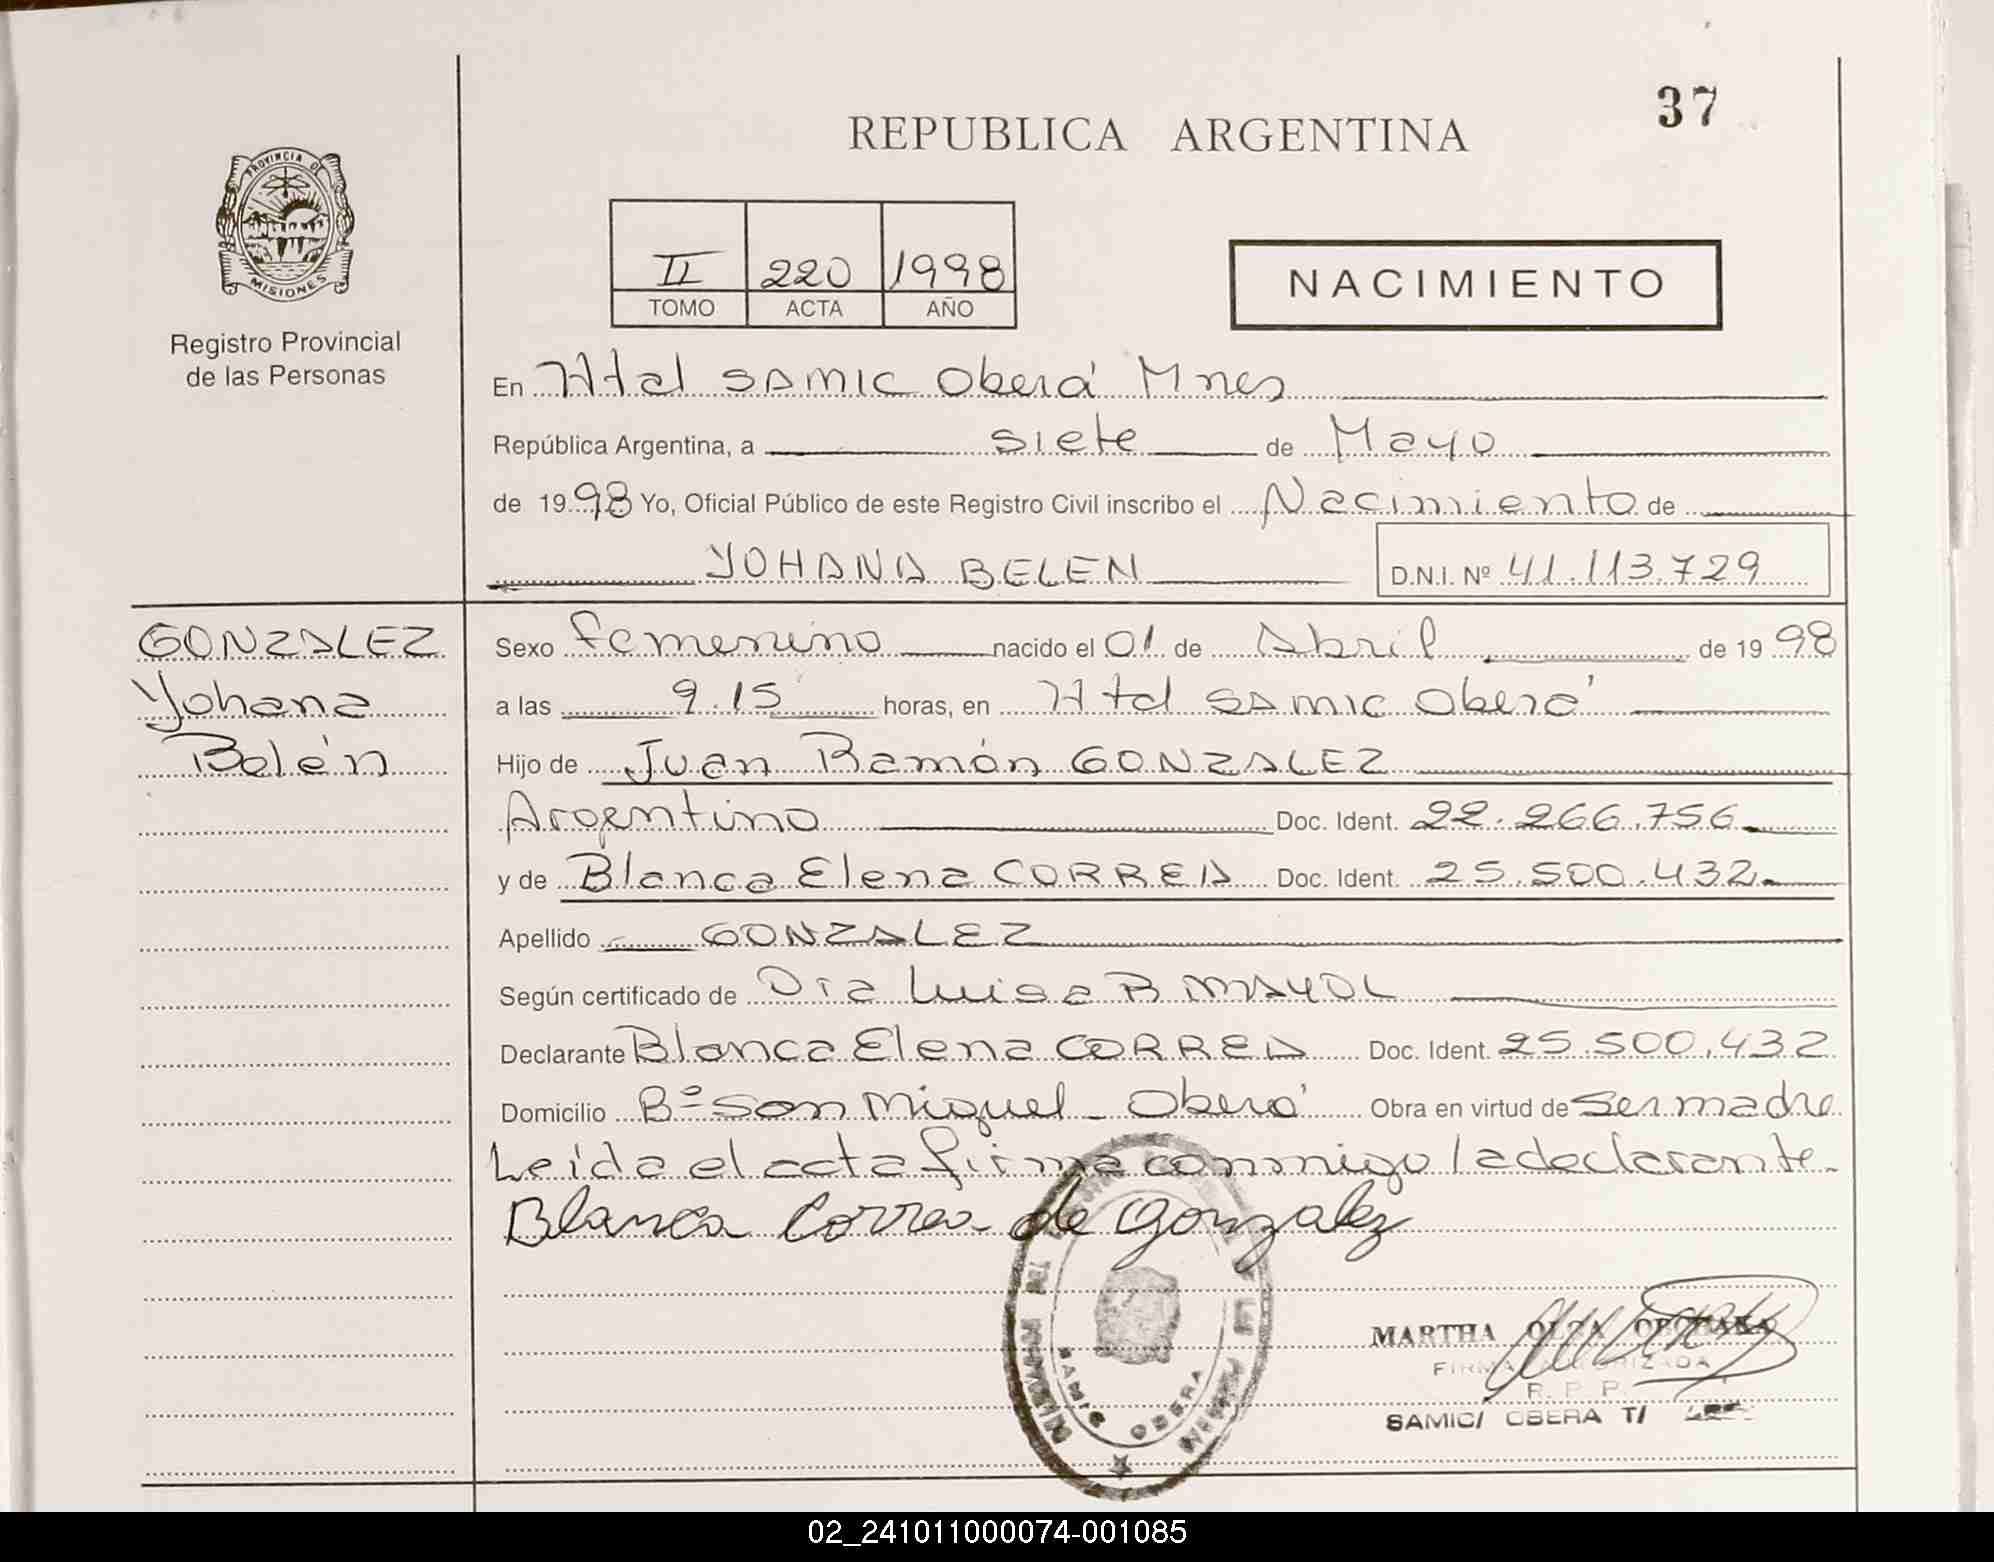 37
REPUBLICA ARGENTINA
PROVINCIA DE
MISIONES
Registro Provincial
de las Personas
II 220 1998
TOMO ACTA AÑO
NACIMIENTO
En Htal SAMIC Oberá Mnes
República Argentina, a siete de Mayo
de 1998 Yo, Oficial Público de este Registro Civil inscribo el Nacimiento de
YOHANA BELEN D.N.I. Nº 41.113.729
GONZALEZ
Yohana
Belén
Sexo femenino nacido el 01 de Abril de 1998
a las 9.15 horas, en Htal SAMIC Oberá
Hijo de Juan Ramón GONZALEZ
Argentino Doc. Ident. 22.266.756
y de Blanca Elena CORREA Doc. Ident. 25.500.432
Apellido GONZALEZ
Según certificado de Dra Luisa B MAYOL
Declarante Blanca Elena CORREA Doc. Ident. 25.500.432
Domicilio Bº San Miguel - Oberá Obra en virtud de ser madre
Leída el acta firma conmigo la declarante
Blanca Correa de Gonzalez
SAMIC OBERA
MARTHA OLGA
FIRMA AUTORIZADA
R. P. P.
SAMIC/ OBERA T/
02_241011000074-001085